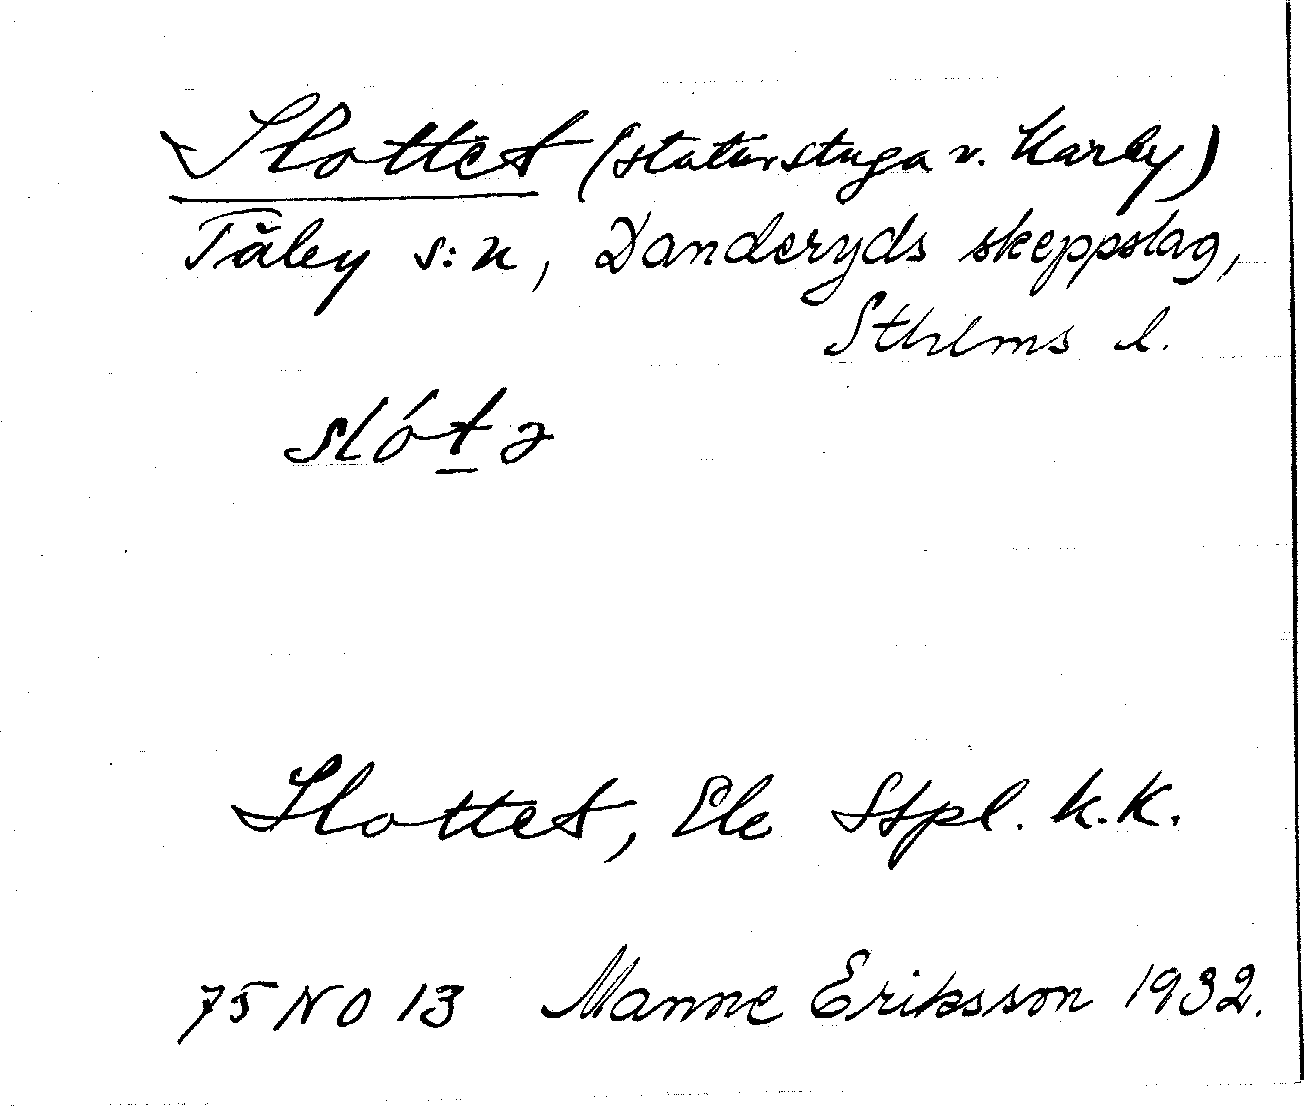 Slottet (statarstuga v. Karby)
Täby s:n, Danderyds skeppslag,
Sthlms l.
slótə
Slottet, Ele Stpl. k.k.
75 NO 13 Manne Eriksson 1932.